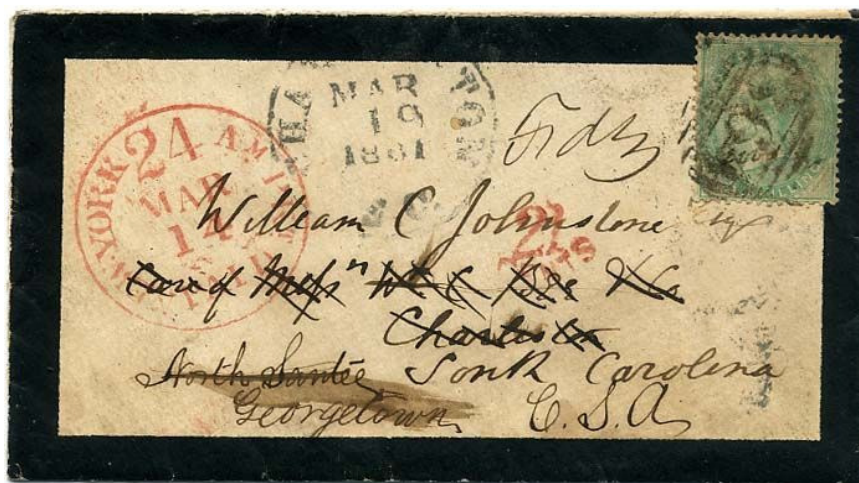 MAR
19
1861
N. YORK 24 AM. PKT.
MAR
14
PAID
William C Johnstone Esq
Care of Messrs Wm C Bee & Co
Charleston
North Santee South Carolina
Georgetown C.S.A.